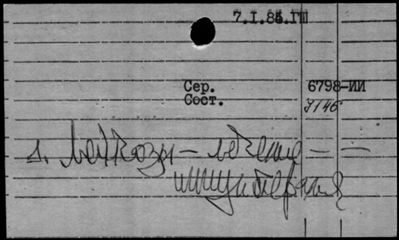 7.I.86.ГШ
Сер. 6798-ИИ
Сост. 7146
1. Лейкозы – лечение – –
иммунотерапия